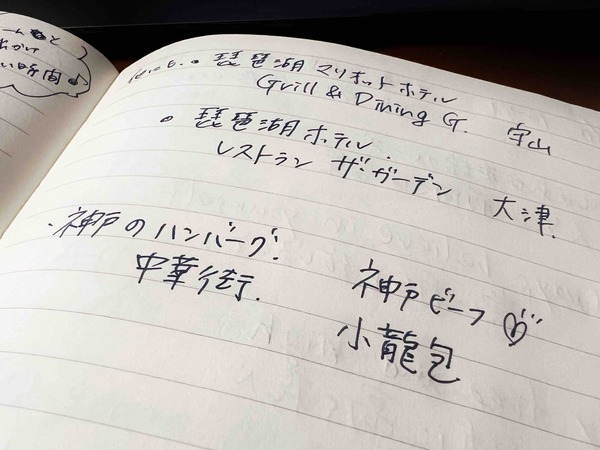 い時間
琵琶湖マリオットホテル
Grill & Dining G. 守山
琵琶湖ホテル.
レストラン ザ・ガーデン 大津.
・神戸のハンバーグ.
中華街.
神戸ビーフ♡
小龍包